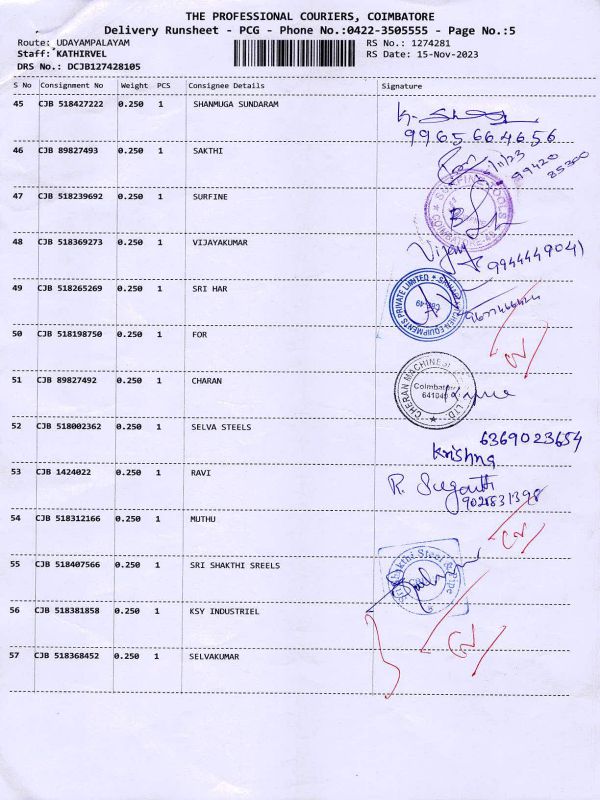 THE PROFESSIONAL COURIERS, COIMBATORE
Delivery Runsheet - PCG - Phone No.:0422-3505555 - Page No.:5
Route: UDAYAMPALAYAM
RS No.: 1274281
Staff: KATHIRVEL
RS Date: 15-Nov-2023
DRS No.: DCJB127428105
S No Consignment No Weight PCS Consignee Details Signature
45 CJB 518427222 0.250 1 SHANMUGA SUNDARAM
9965664656
46 CJB 89827493 0.250 1 SAKTHI
/11/23
99420
85300
47 CJB 518239692 0.250 1 SURFINE
48 CJB 518369273 0.250 1 VIJAYAKUMAR
Vijay
9944449041
49 CJB 518265269 0.250 1 SRI HAR
EQUIPMENTS PRIVATE LIMITED
50 CJB 518198750 0.250 1 FOR
51 CJB 89827492 0.250 1 CHARAN
CHERAN MACHINES
LTD
Coimbatore
641049
52 CJB 518002362 0.250 1 SELVA STEELS
6369023654
Krishna
53 CJB 1424022 0.250 1 RAVI
R.
9028831398
54 CJB 518312166 0.250 1 MUTHU
55 CJB 518407566 0.250 1 SRI SHAKTHI SREELS
Steel & Pipe
56 CJB 518381858 0.250 1 KSY INDUSTRIEL
57 CJB 518368452 0.250 1 SELVAKUMAR